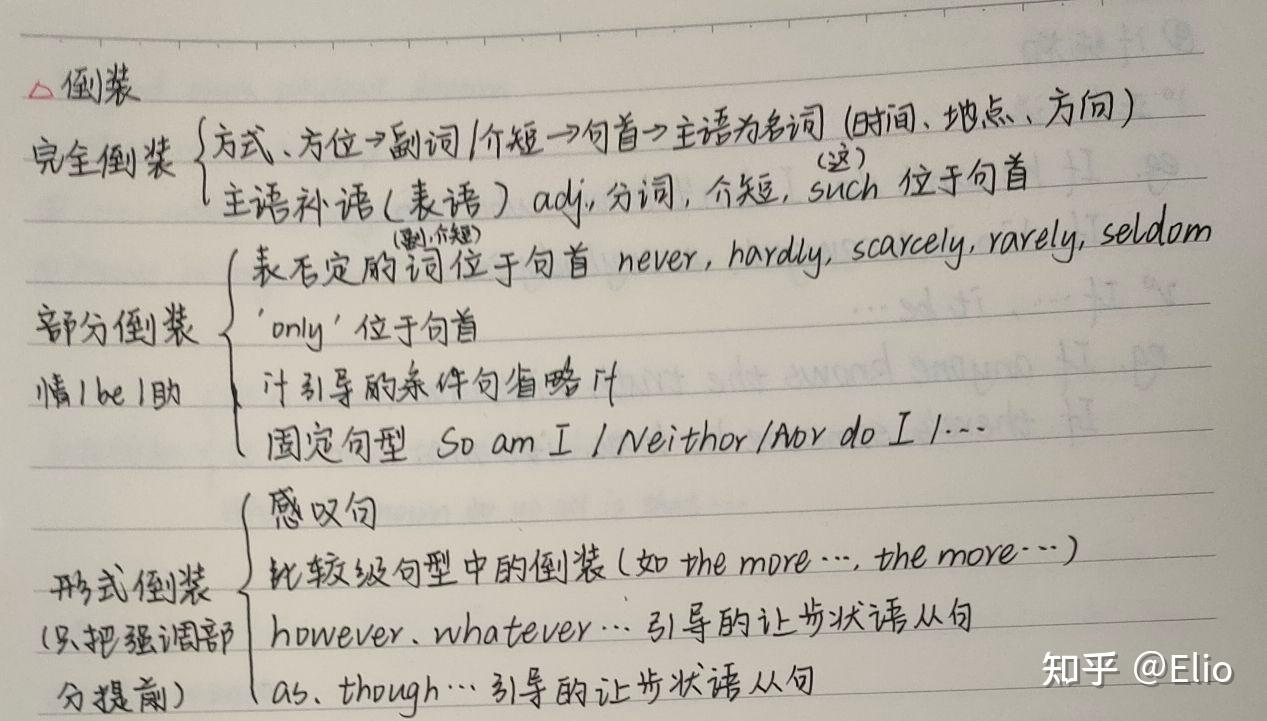 △倒装
完全倒装
方式、方位→副词/介短→句首→主语为名词(时间、地点、方向)
(这)
主语补语(表语) adj., 分词, 介短, such 位于句首
(副、介短)
表否定的词位于句首 never, hardly, scarcely, rarely, seldom
部分倒装
'only' 位于句首
情/be/助
if引导的条件句省略if
固定句型 So am I / Neithor /Nor do I /…
感叹句
形式倒装
比较级句型中的倒装(如 the more …, the more…)
(只把强调部
however、whatever … 引导的让步状语从句
分提前)
as、though… 引导的让步状语从句
知乎 @Elio